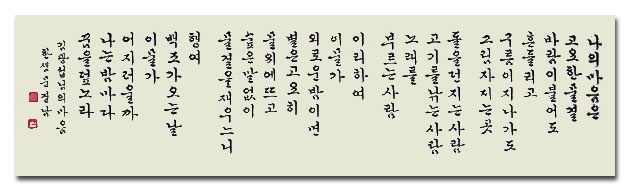 나의 마음은
고요한 물결
바람이 불어도
흔들리고
구름이 지나가도
그림자 지는 곳
돌을 던지는 사람
고기를 낚는 사람
노래를
부르는 사람
이리하여
이 물가
외로운 밤이면
별은 고요히
물 위에 뜨고
숲은 말없이
물결을 재우느니
행여
백조가 오는 날
이 물가
어지러울까
나는 밤마다
꿈을 덮노라
김광섭님의 마음